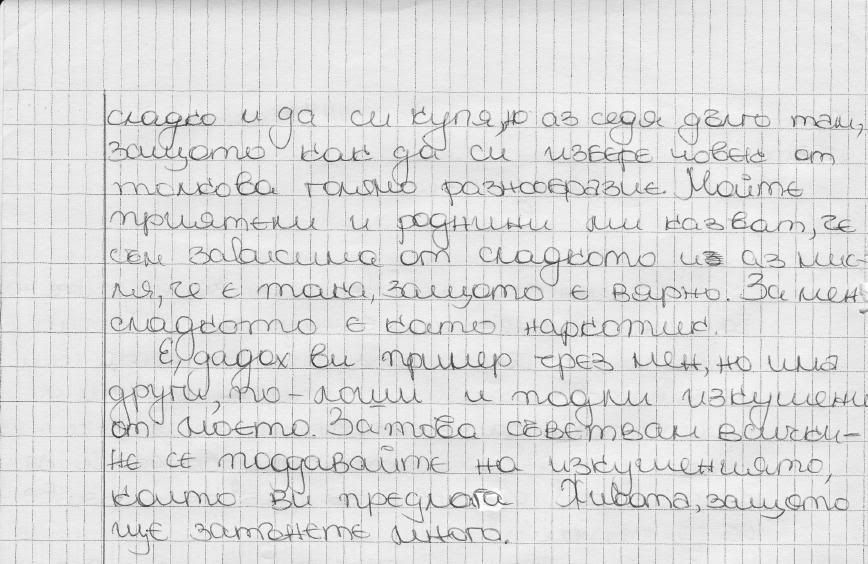 сладко и да си купя, но аз седя дълго там,
защото как да си избере човек от
толкова голямо разнообразие. Моите
приятели и роднини ми казват, че
съм зависима от сладкото и аз мис-
ля, че е така, защото е варно. За мен
сладкото е като наркотик.
Е, дадох ви пример чрез мен, но има
други, по-лоши и подли изкушени
от моето. Затова съветвам всички-
не се поддавайте на изкушенията,
които ви предлага живота, защото
ще затънете много.